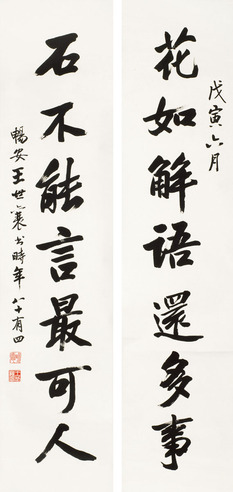 戊寅六月
花如解語還多事
石不能言最可人
暢安王世襄書時年八十有四